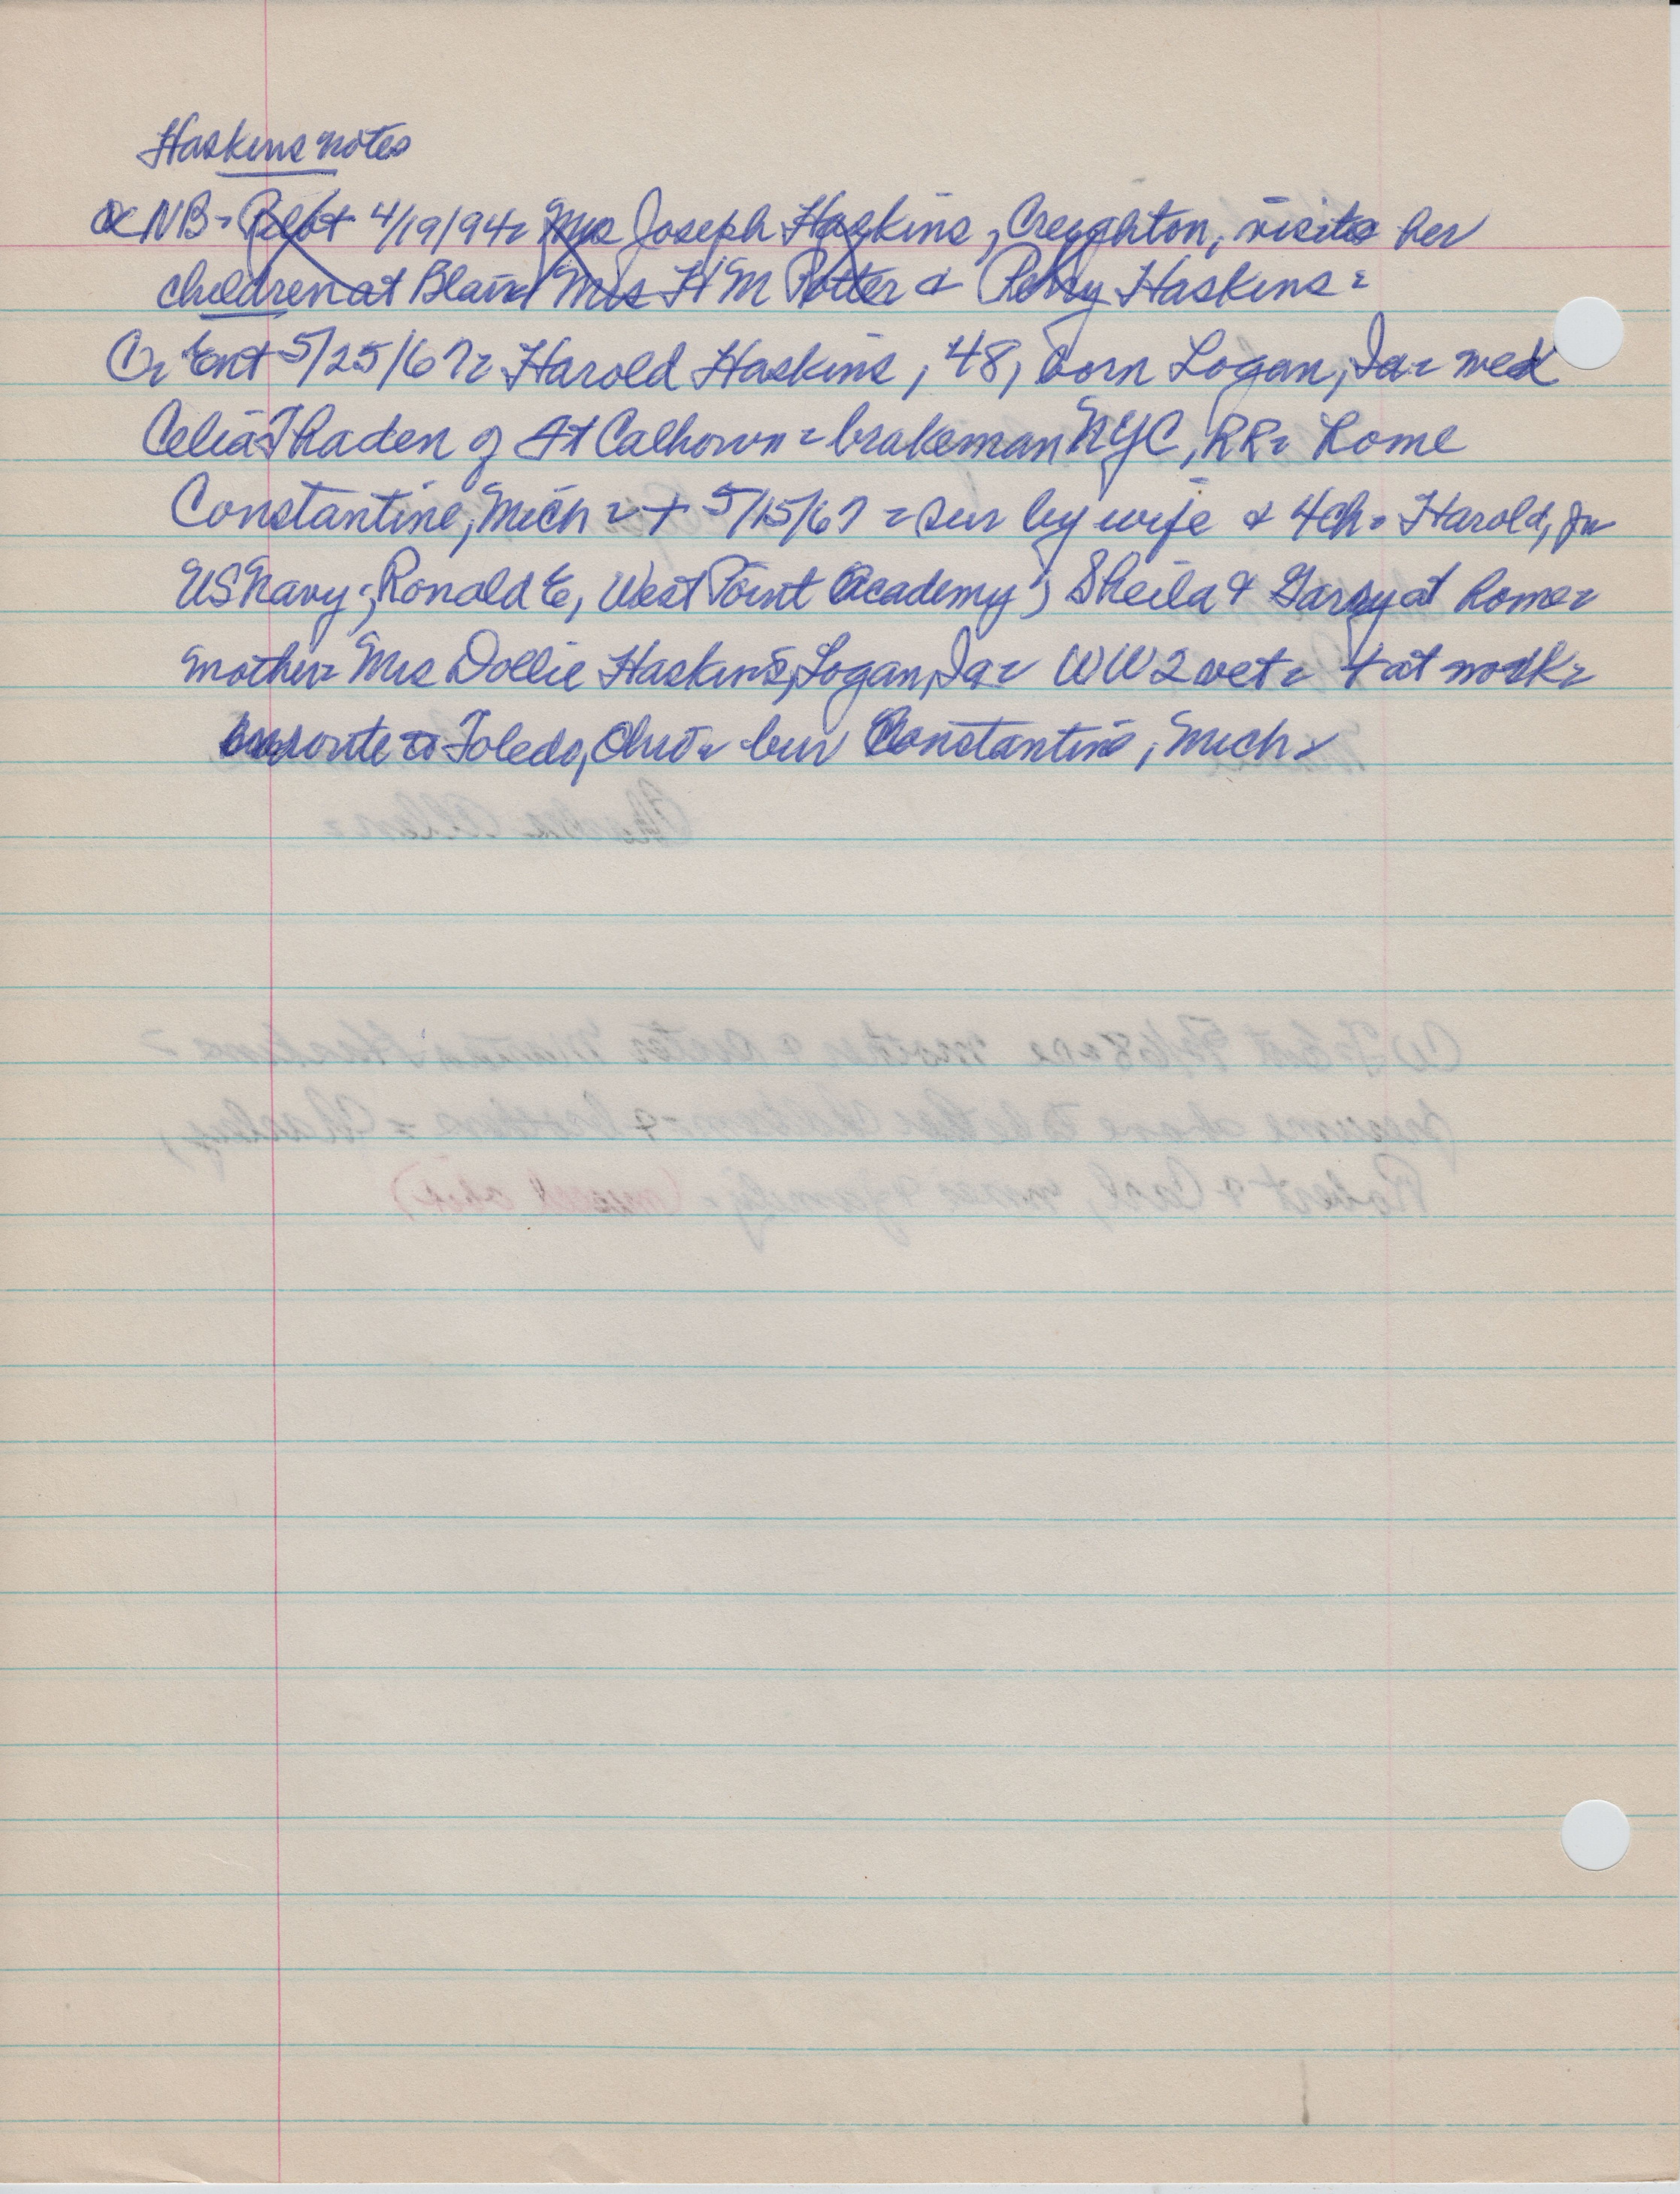 Haskins notes
NB = Pilot 4/19/94 = Mrs Joseph Haskins, Creighton, visits her
children at Blair Mrs H M Potter & Perry Haskins =
C = Ent 5/25/67 = Harold Haskins, 48, born Logan, Ia = wed
Celia Thaden of Ft Calhoun = brakeman NYC, RR = home
Constantine, Mich = + 5/15/67 = sur by wife & 4 ch = Harold, Jr
US Navy; Ronald E, West Point Academy; Sheila & Garry at home =
mother = Mrs Dollie Haskins, Logan, Ia = WW2 vet = + at work =
enroute to Toledo, Ohio = bur Constantine, Mich =